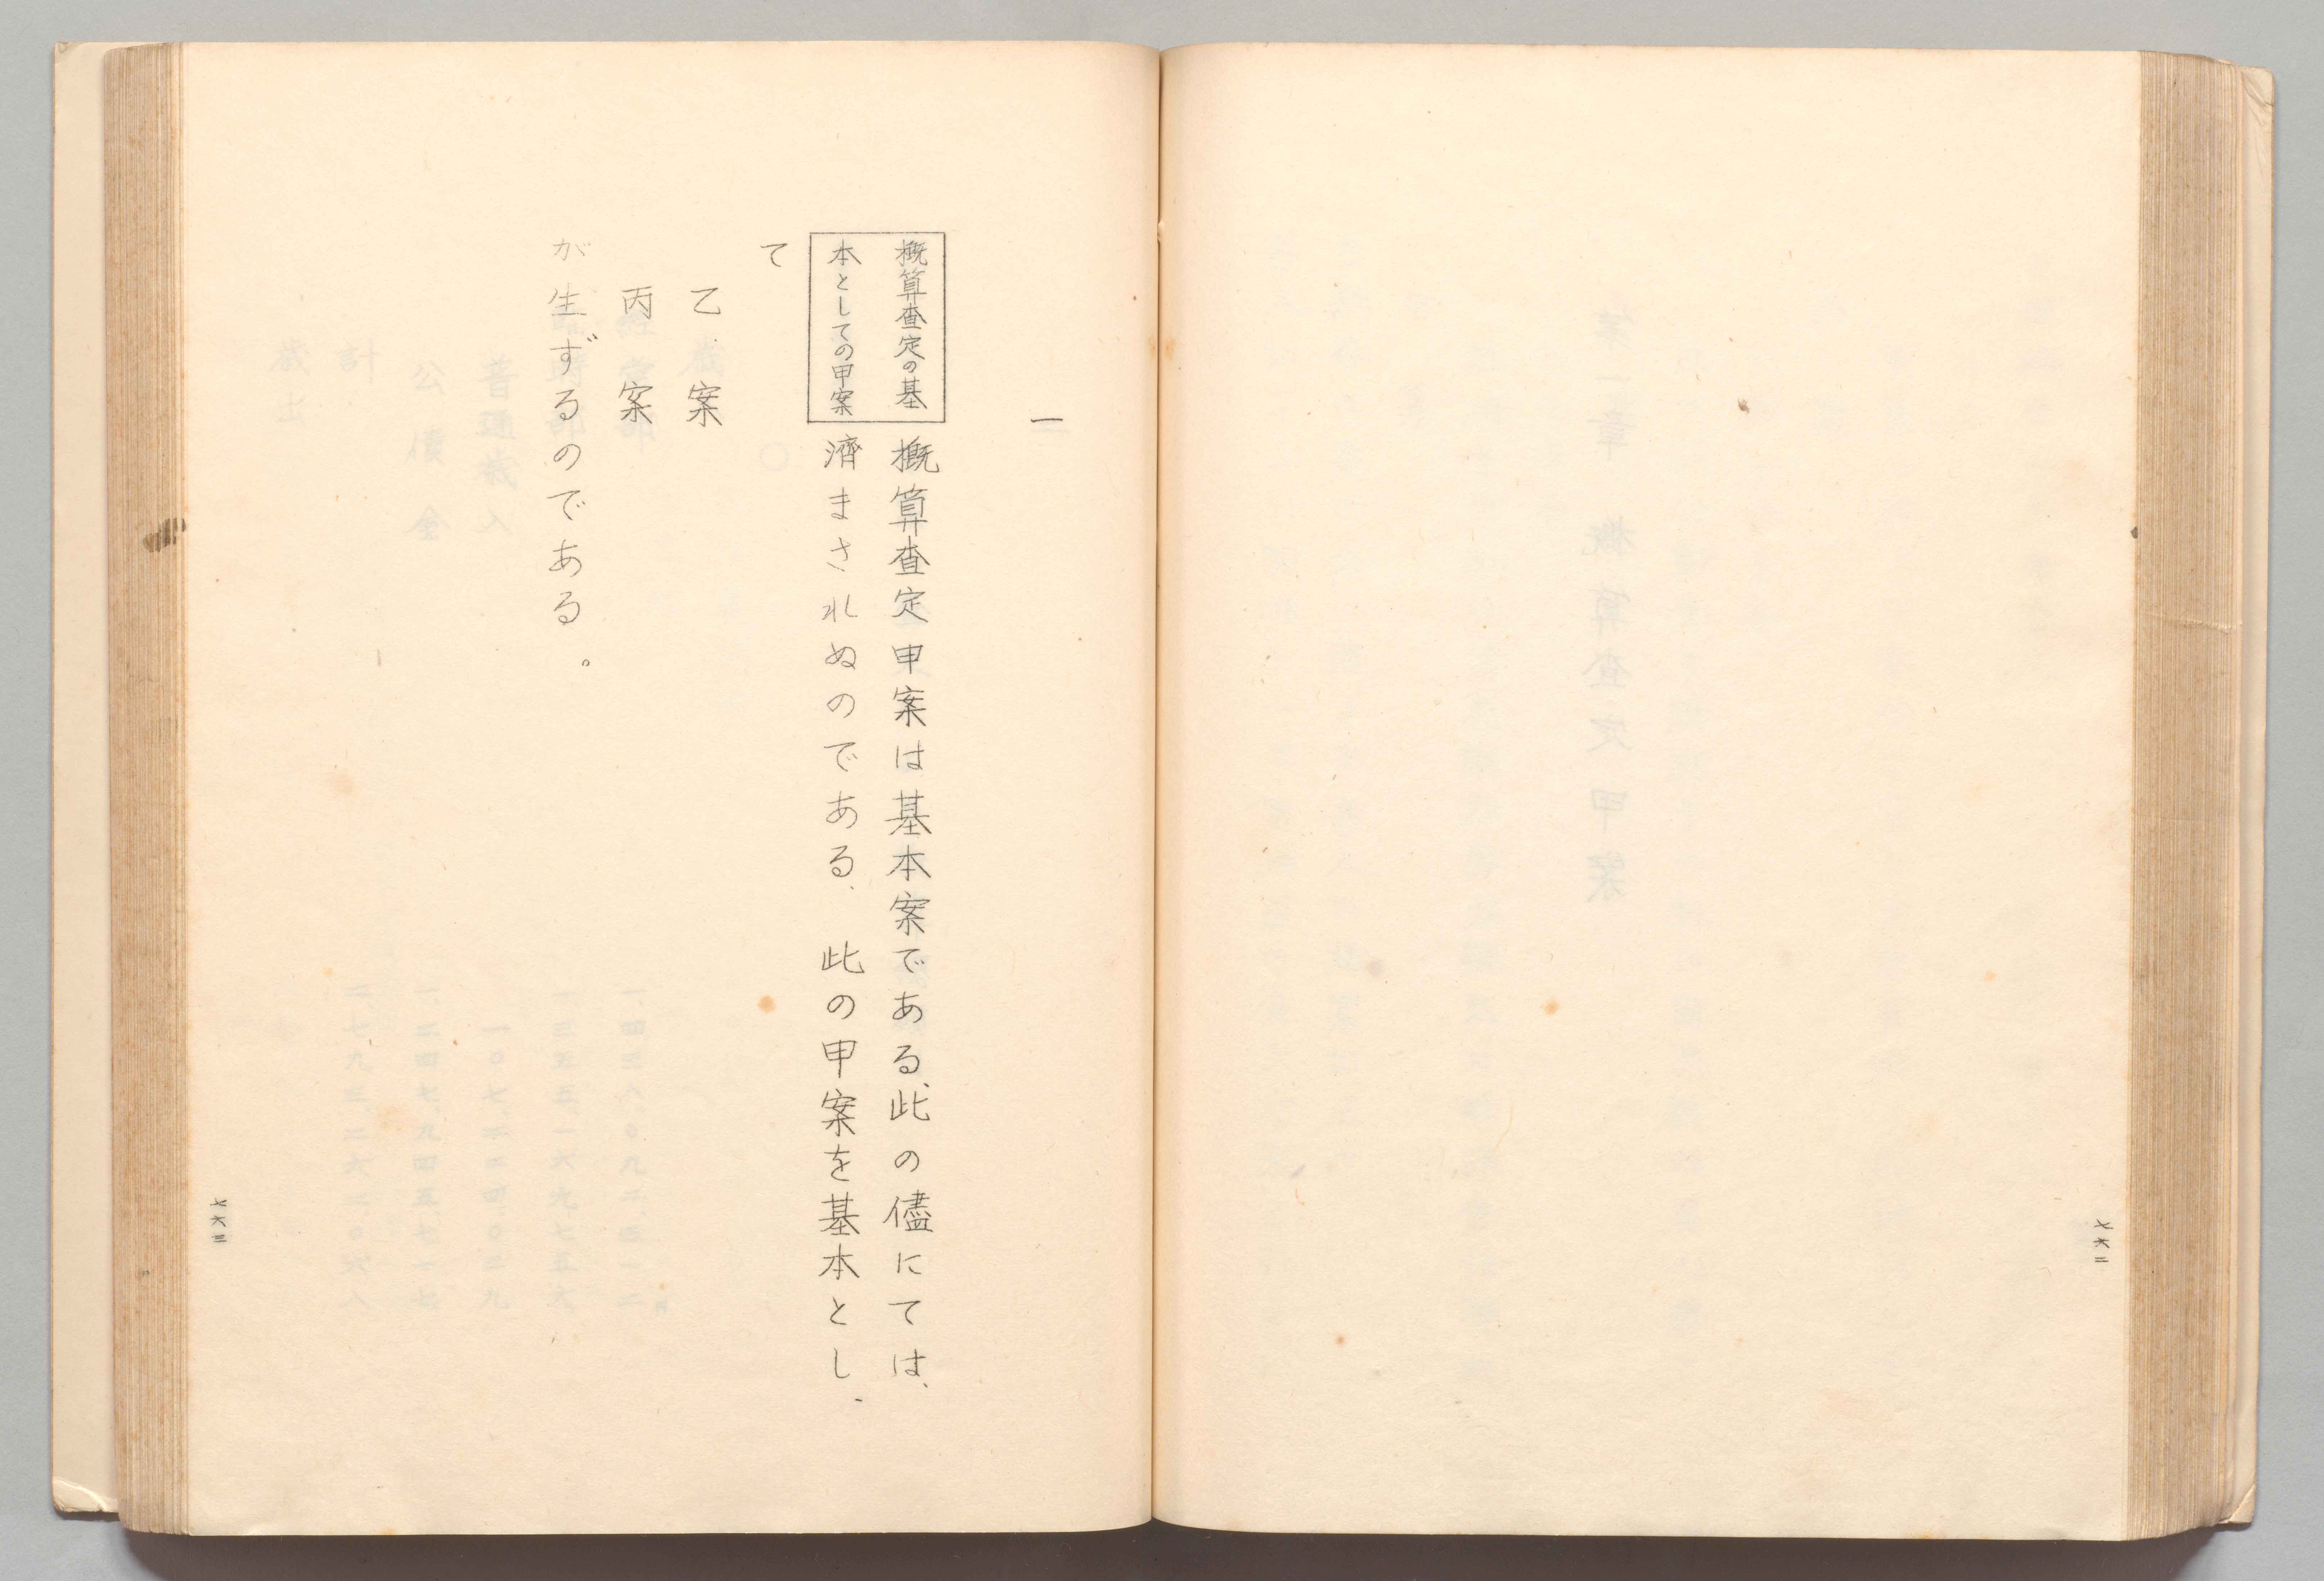 七六二
一
概算査定の基
本としての甲案
概算査定甲案は基本案である、此の儘にては、
濟まされぬのである、此の甲案を基本とし、
て
乙案
丙案
が生ずるのである。
七六三